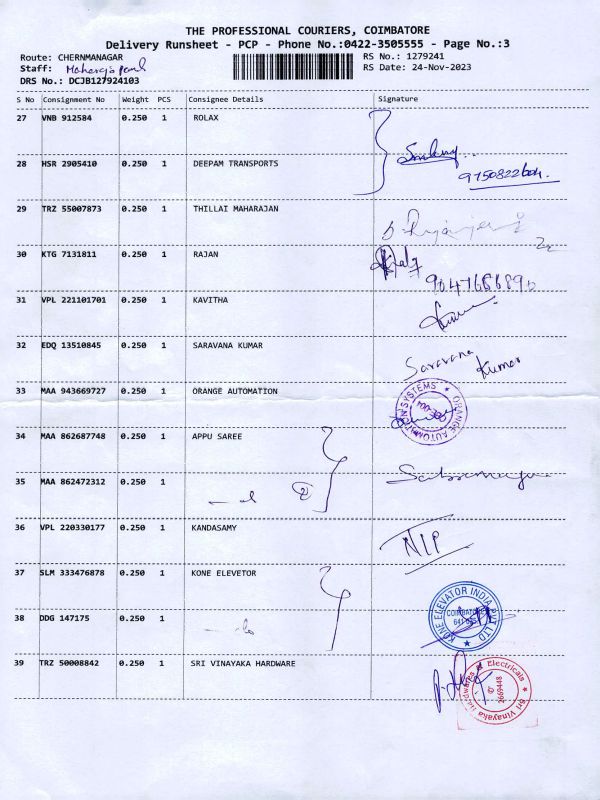 THE PROFESSIONAL COURIERS, COIMBATORE
Delivery Runsheet - PCP - Phone No.:0422-3505555 - Page No.:3
Route: CHERNMANAGAR RS No.: 1279241
Staff: RS Date: 24-Nov-2023
DRS No.: DCJB127924103
S No Consignment No Weight PCS Consignee Details Signature
27 VNB 912584 0.250 1 ROLAX
28 HSR 2905410 0.250 1 DEEPAM TRANSPORTS
29 TRZ 55007873 0.250 1 THILLAI MAHARAJAN
30 KTG 7131811 0.250 1 RAJAN
31 VPL 221101701 0.250 1 KAVITHA
32 EDQ 13510845 0.250 1 SARAVANA KUMAR Saravana Kumar
33 MAA 943669727 0.250 1 ORANGE AUTOMATION ORANGE AUTOMATION SYSTEMS
34 MAA 862687748 0.250 1 APPU SAREE
35 MAA 862472312 0.250 1
36 VPL 220330177 0.250 1 KANDASAMY
37 SLM 333476878 0.250 1 KONE ELEVETOR
38 DDG 147175 0.250 1 KONE ELEVATOR INDIA PVT LTD
39 TRZ 50008842 0.250 1 SRI VINAYAKA HARDWARE Sri Vinayaka Hardwares & Electricals 2669448